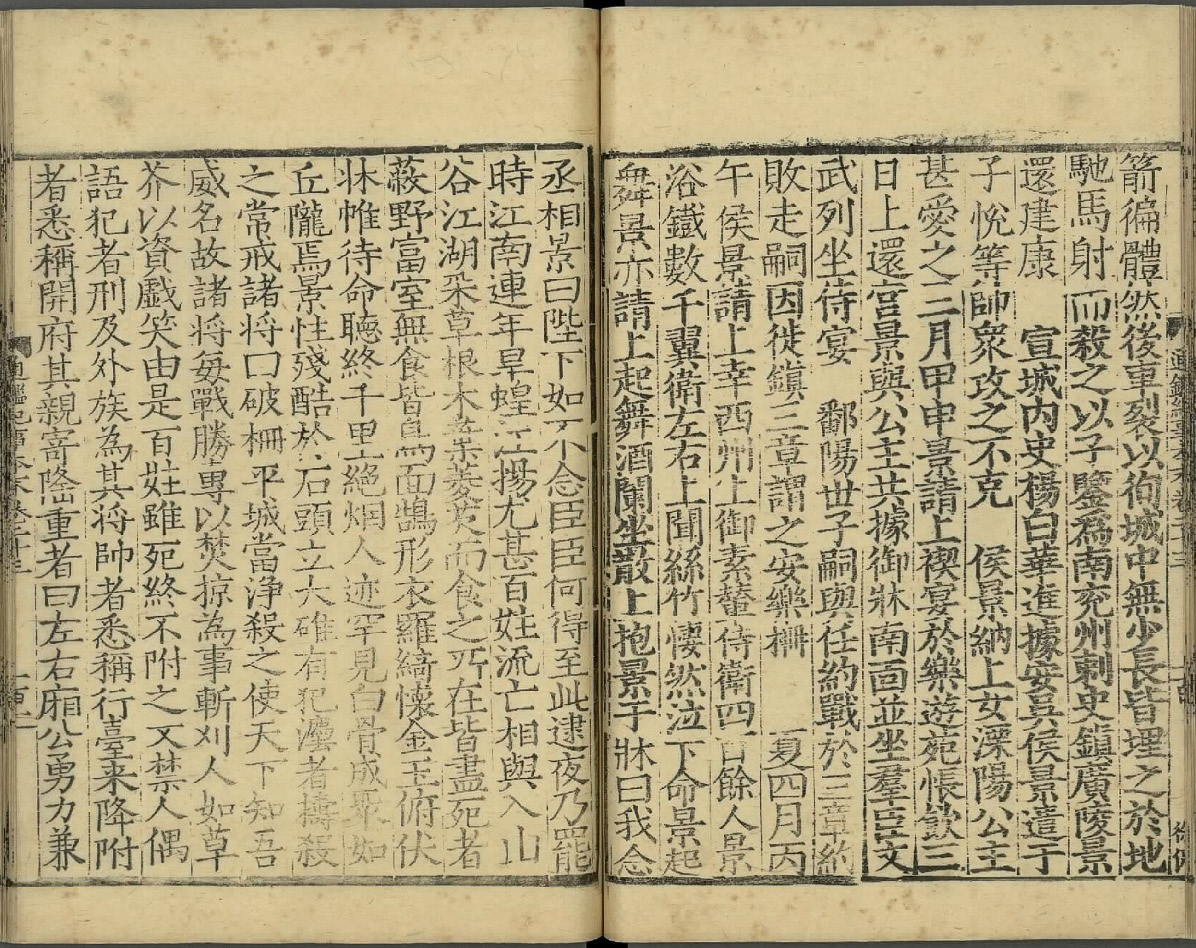 箭徧體然後車裂以徇城中無少長皆埋之於地
馳馬射而殺之以子鑒爲南兖州刺史鎮廣陵景
還建康　宣城内史楊白華進據安吳侯景遣于
子悅等帥衆攻之不克　侯景納上女溧陽公主
甚愛之三月甲申景請上禊宴於樂遊苑帳飲三
日上還宫景與公主共據御牀南面並坐羣臣文
武列坐侍宴　鄱陽世子嗣與任約戰於三章約
敗走嗣因徙鎮三章謂之安樂柵　夏四月丙
午侯景請上幸西州上御素輦侍衛四百餘人景
浴鐵數千翼衛左右上聞絲竹悽然泣下命景起
舞景亦請上起舞酒闌坐散上抱景于牀曰我念
丞相景曰陛下如不念臣臣何得至此逮夜乃罷
時江南連年旱蝗江揚尤甚百姓流亡相與入山
谷江湖采草根木葉菱芡而食之所在皆盡死者
蔽野富室無食皆鳥面鵠形衣羅綺懷金玉俯伏
牀帷待命聽終千里絕烟人迹罕見白骨成聚如
丘隴焉景性殘酷於石頭立大碓有犯灋者擣殺
之常戒諸将曰破柵平城當浄殺之使天下知吾
威名故諸将每戰勝專以焚掠為事斬刈人如草
芥以資戯笑由是百姓雖死終不附之又禁人偶
語犯者刑及外族為其将帥者悉稱行臺来降附
者悉稱開府其親寄隆重者曰左右廂公勇力兼
通鑑紀事本末卷二十三